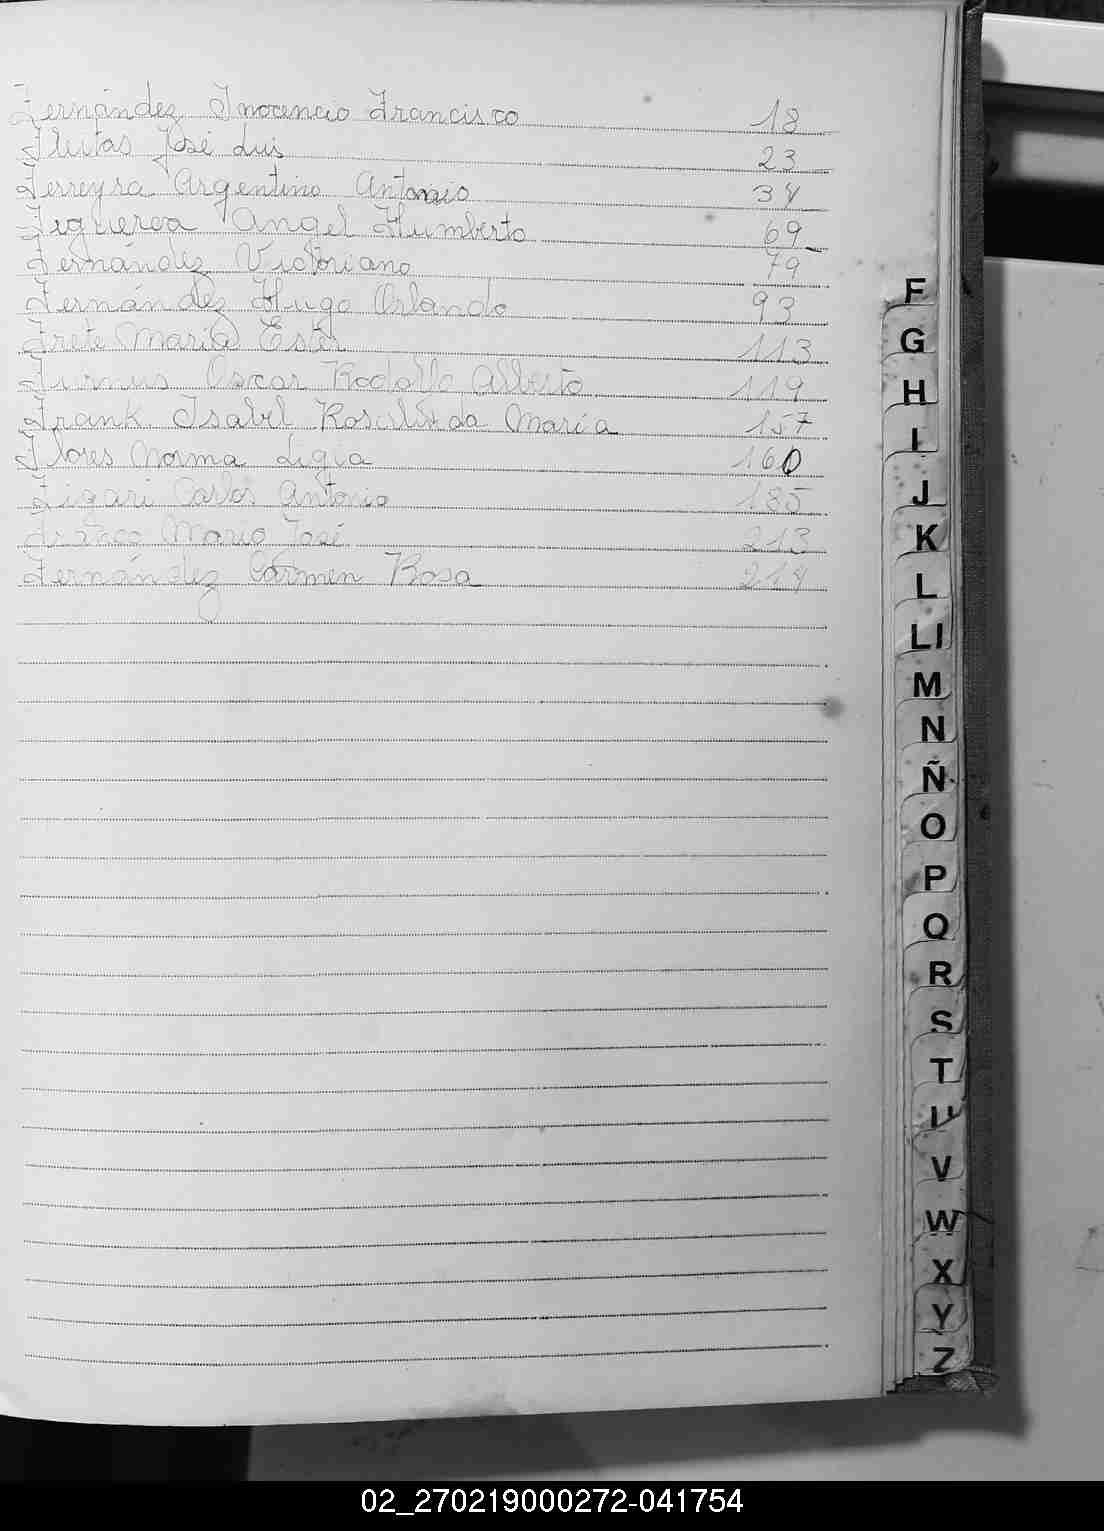 Fernández Inocencio Francisco 18
Fleitas José Luis 23
Ferreyra Argentino Antonio 34
Figueroa Angel Humberto 69
Fernández Victoriano 79
Fernández Hugo Orlando 93
Frete María Ester 113
Oscar Rodolfo Alberto 119
Frank Isabel Rosalinda María 157
Flores Norma Ligia 160
Carlos Antonio 185
Mario José 213
Fernández Carmen Rosa 214
F
G
H
I
J
K
L
Ll
M
N
Ñ
O
P
Q
R
S
T
U
V
W
X
Y
Z
02_270219000272-041754